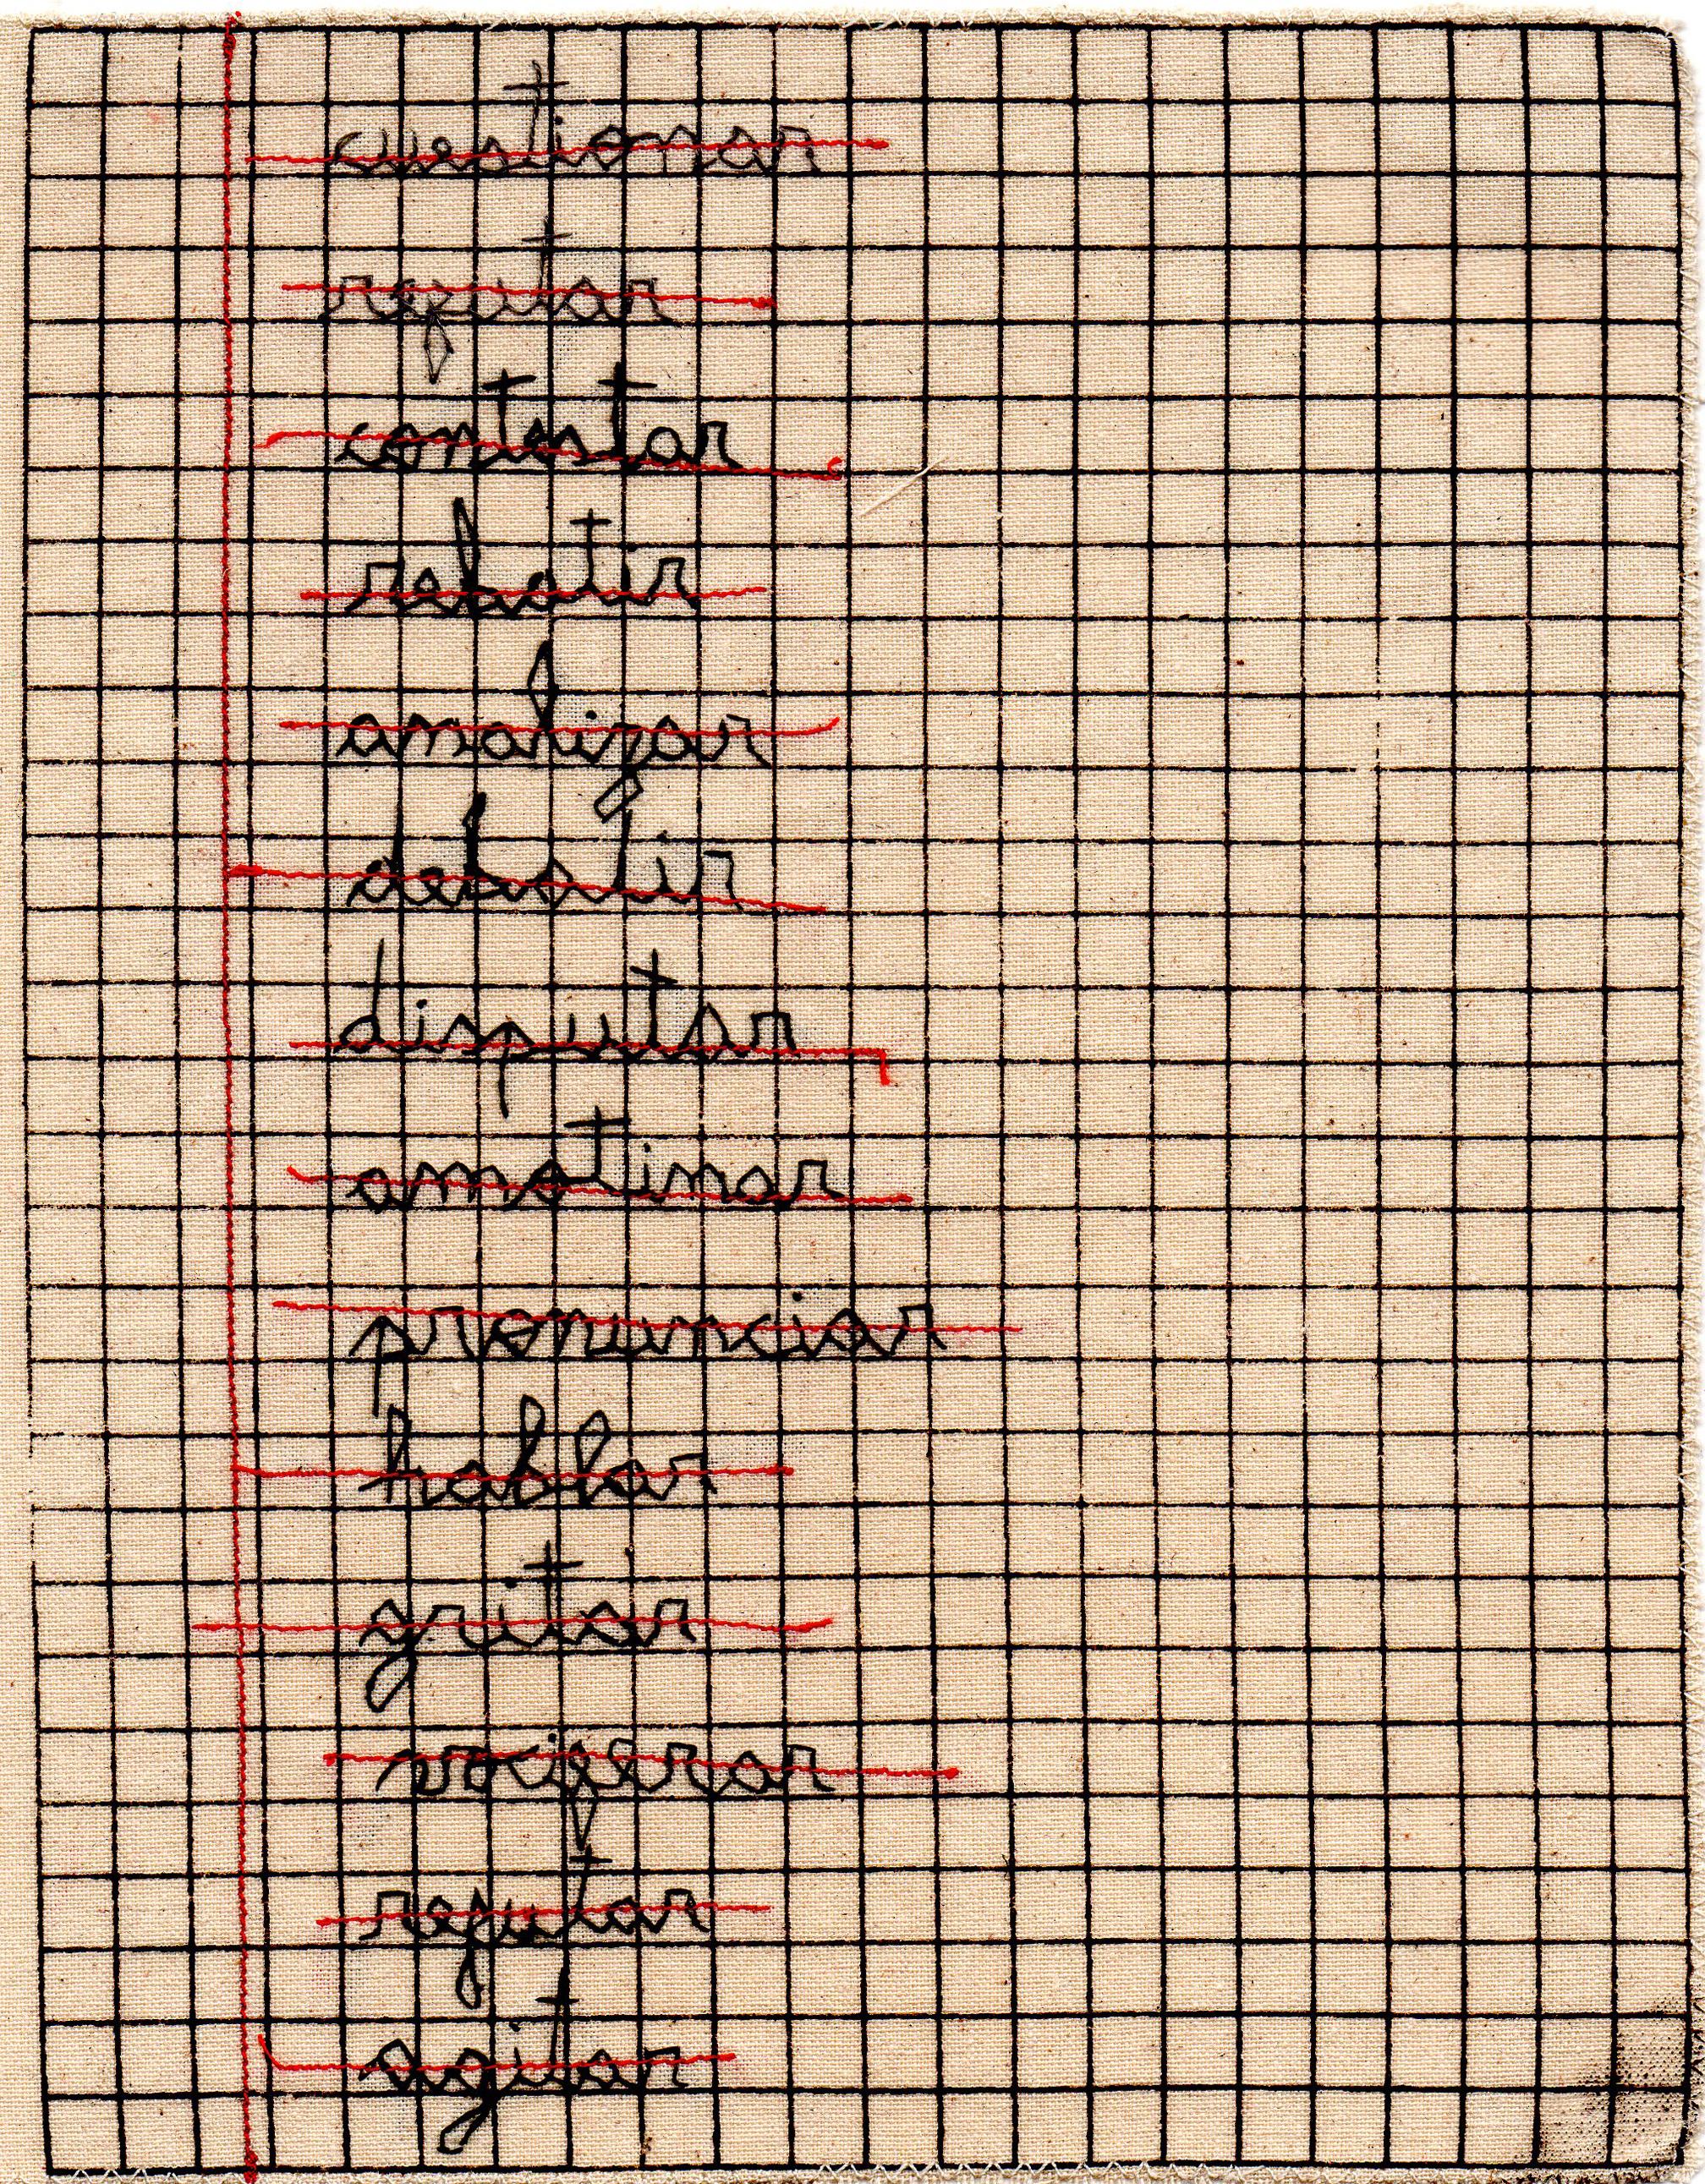 cuestionar
refutar
contestar
rebatir
analizar
debatir
disputar
amotinar
pronunciar
hablar
gritar
vociferar
refutar
agitar